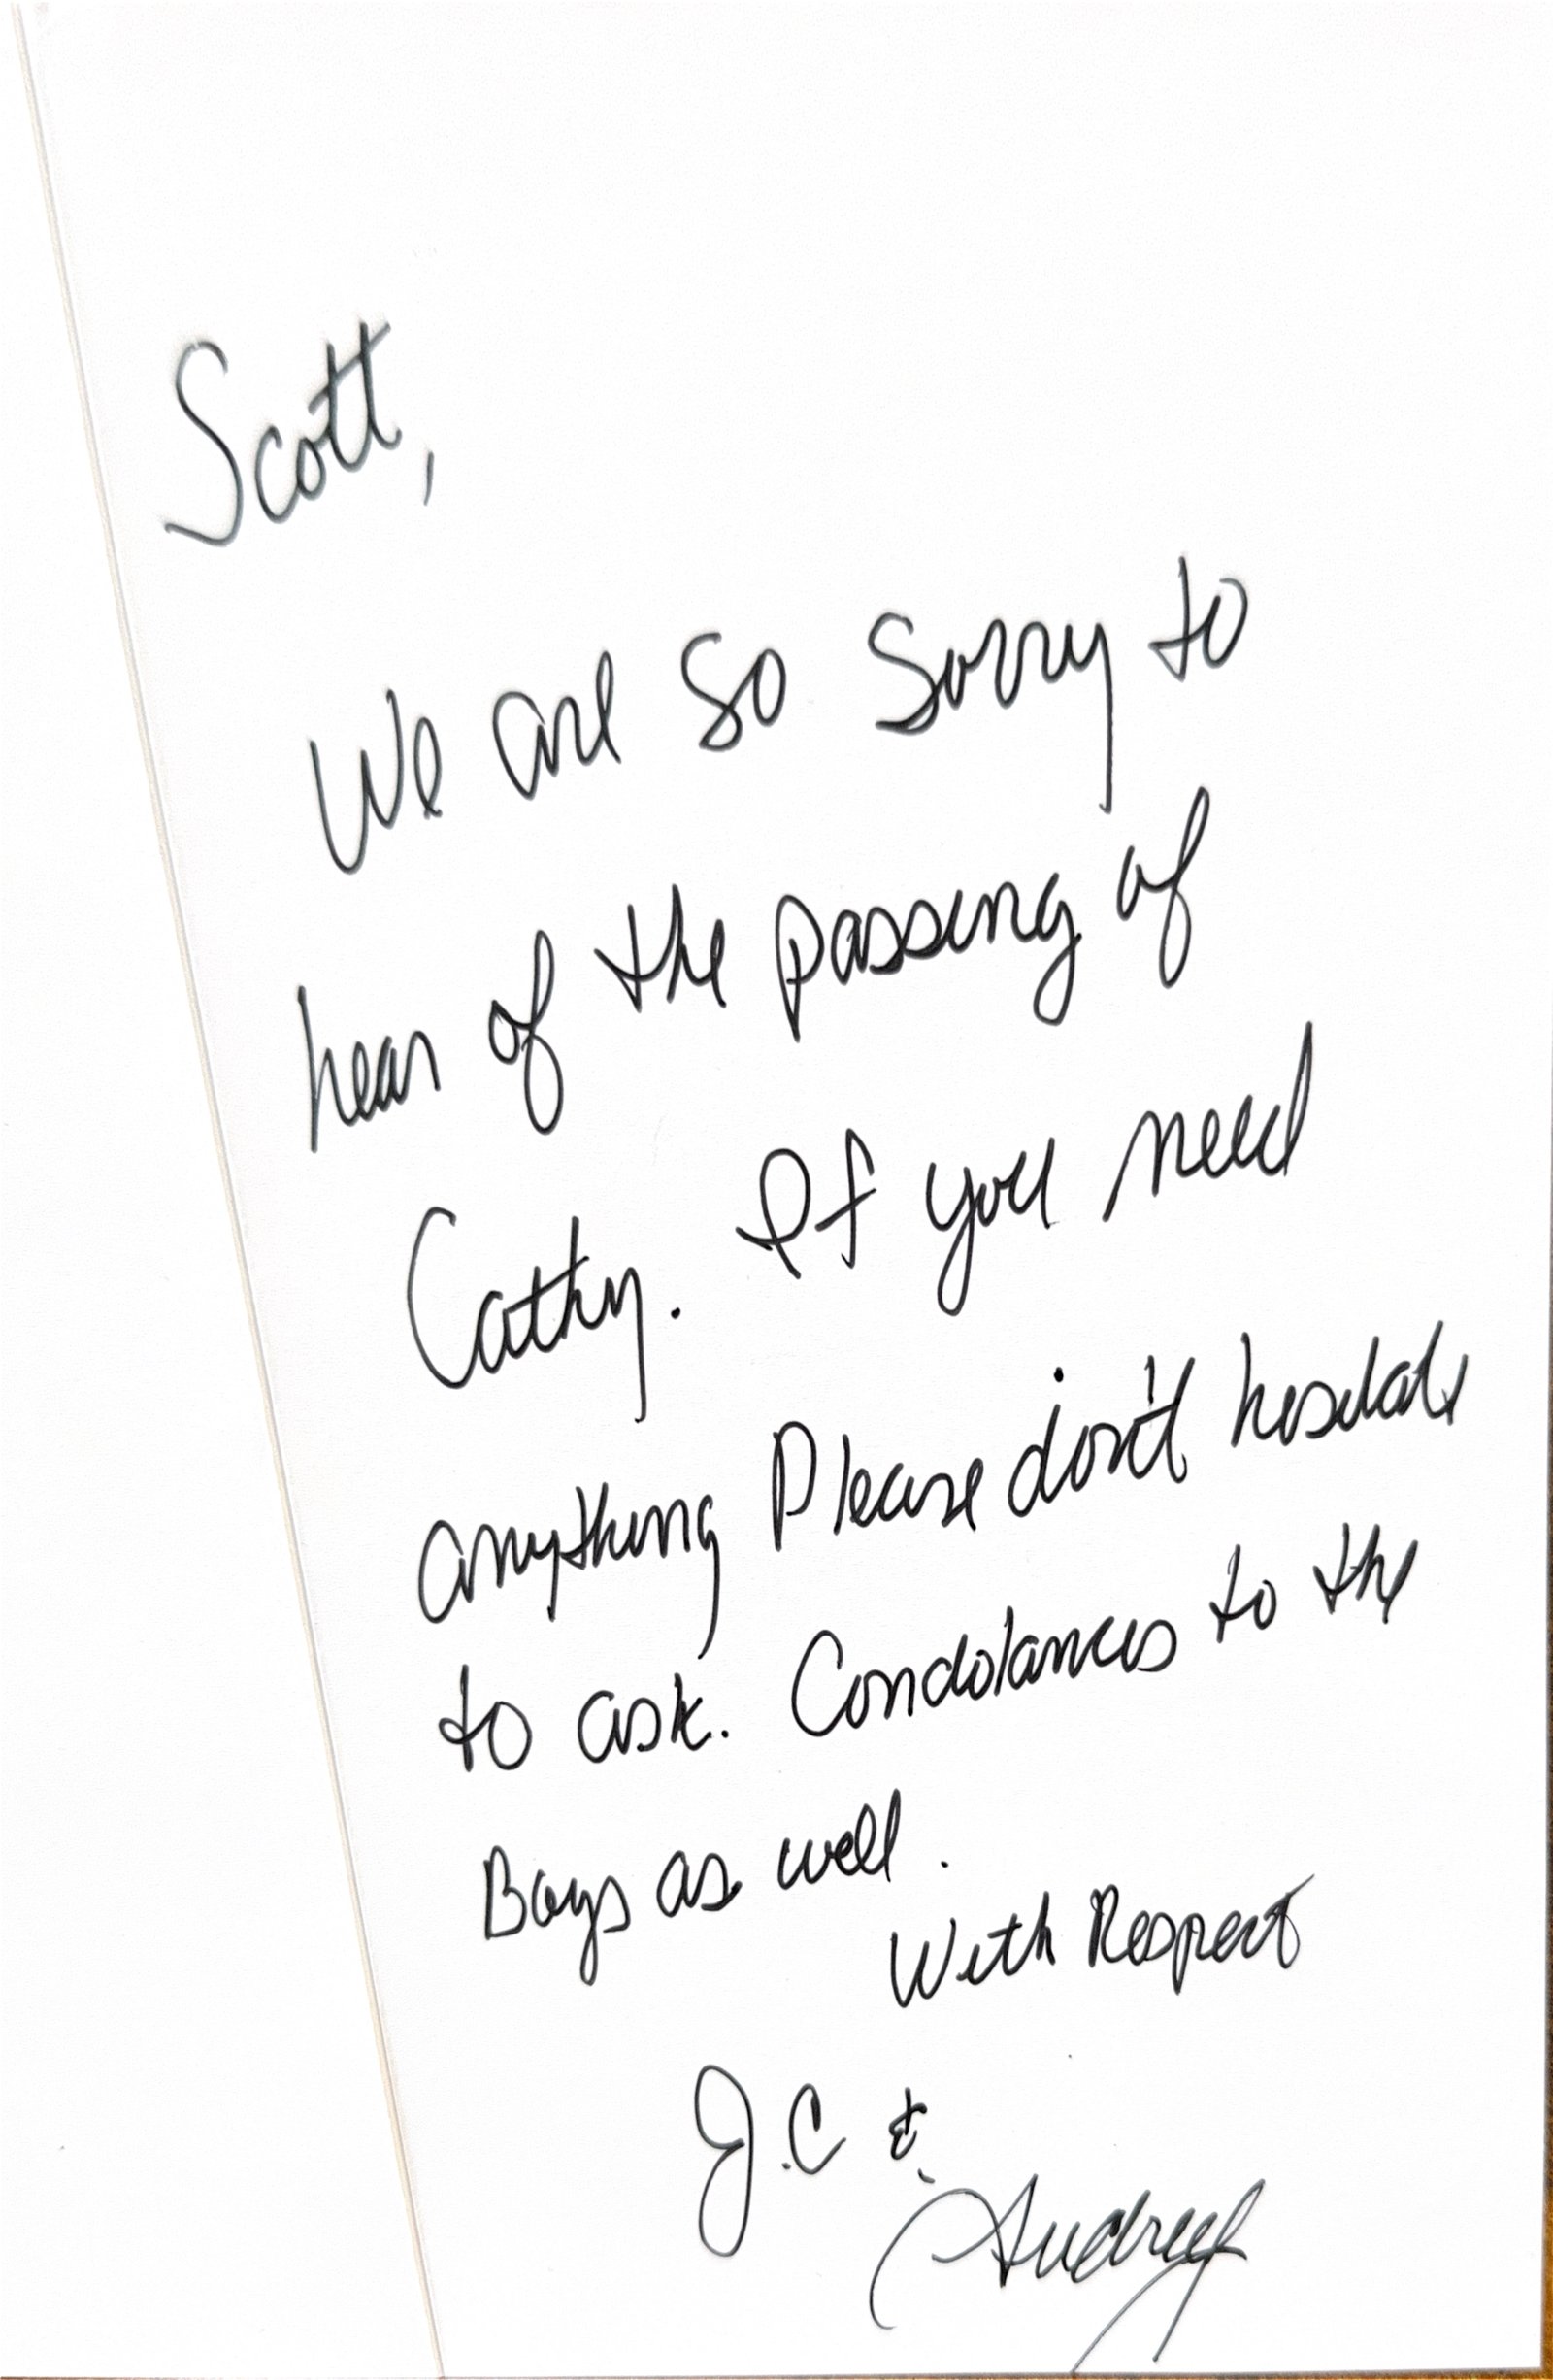 Scott,
We are so sorry to
hear of the passing of
Cathy. If you need
anything Please don't hesitate
to ask. Condolances to the
Boys as well.
With Respect
J.C &
Audrey